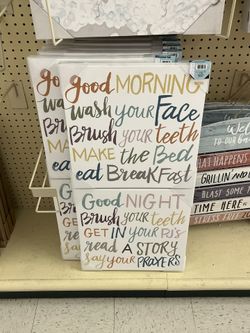 good MORNING
wash your Face
Brush your teeth
MAKE the Bed
eat BreakFast
Good NIGHT
Brush your teeth
GET IN your PJ's
read A STORY
say your PRAYERS
HAPPENS
GRILLIN
BLAST SOME
TIME HERE